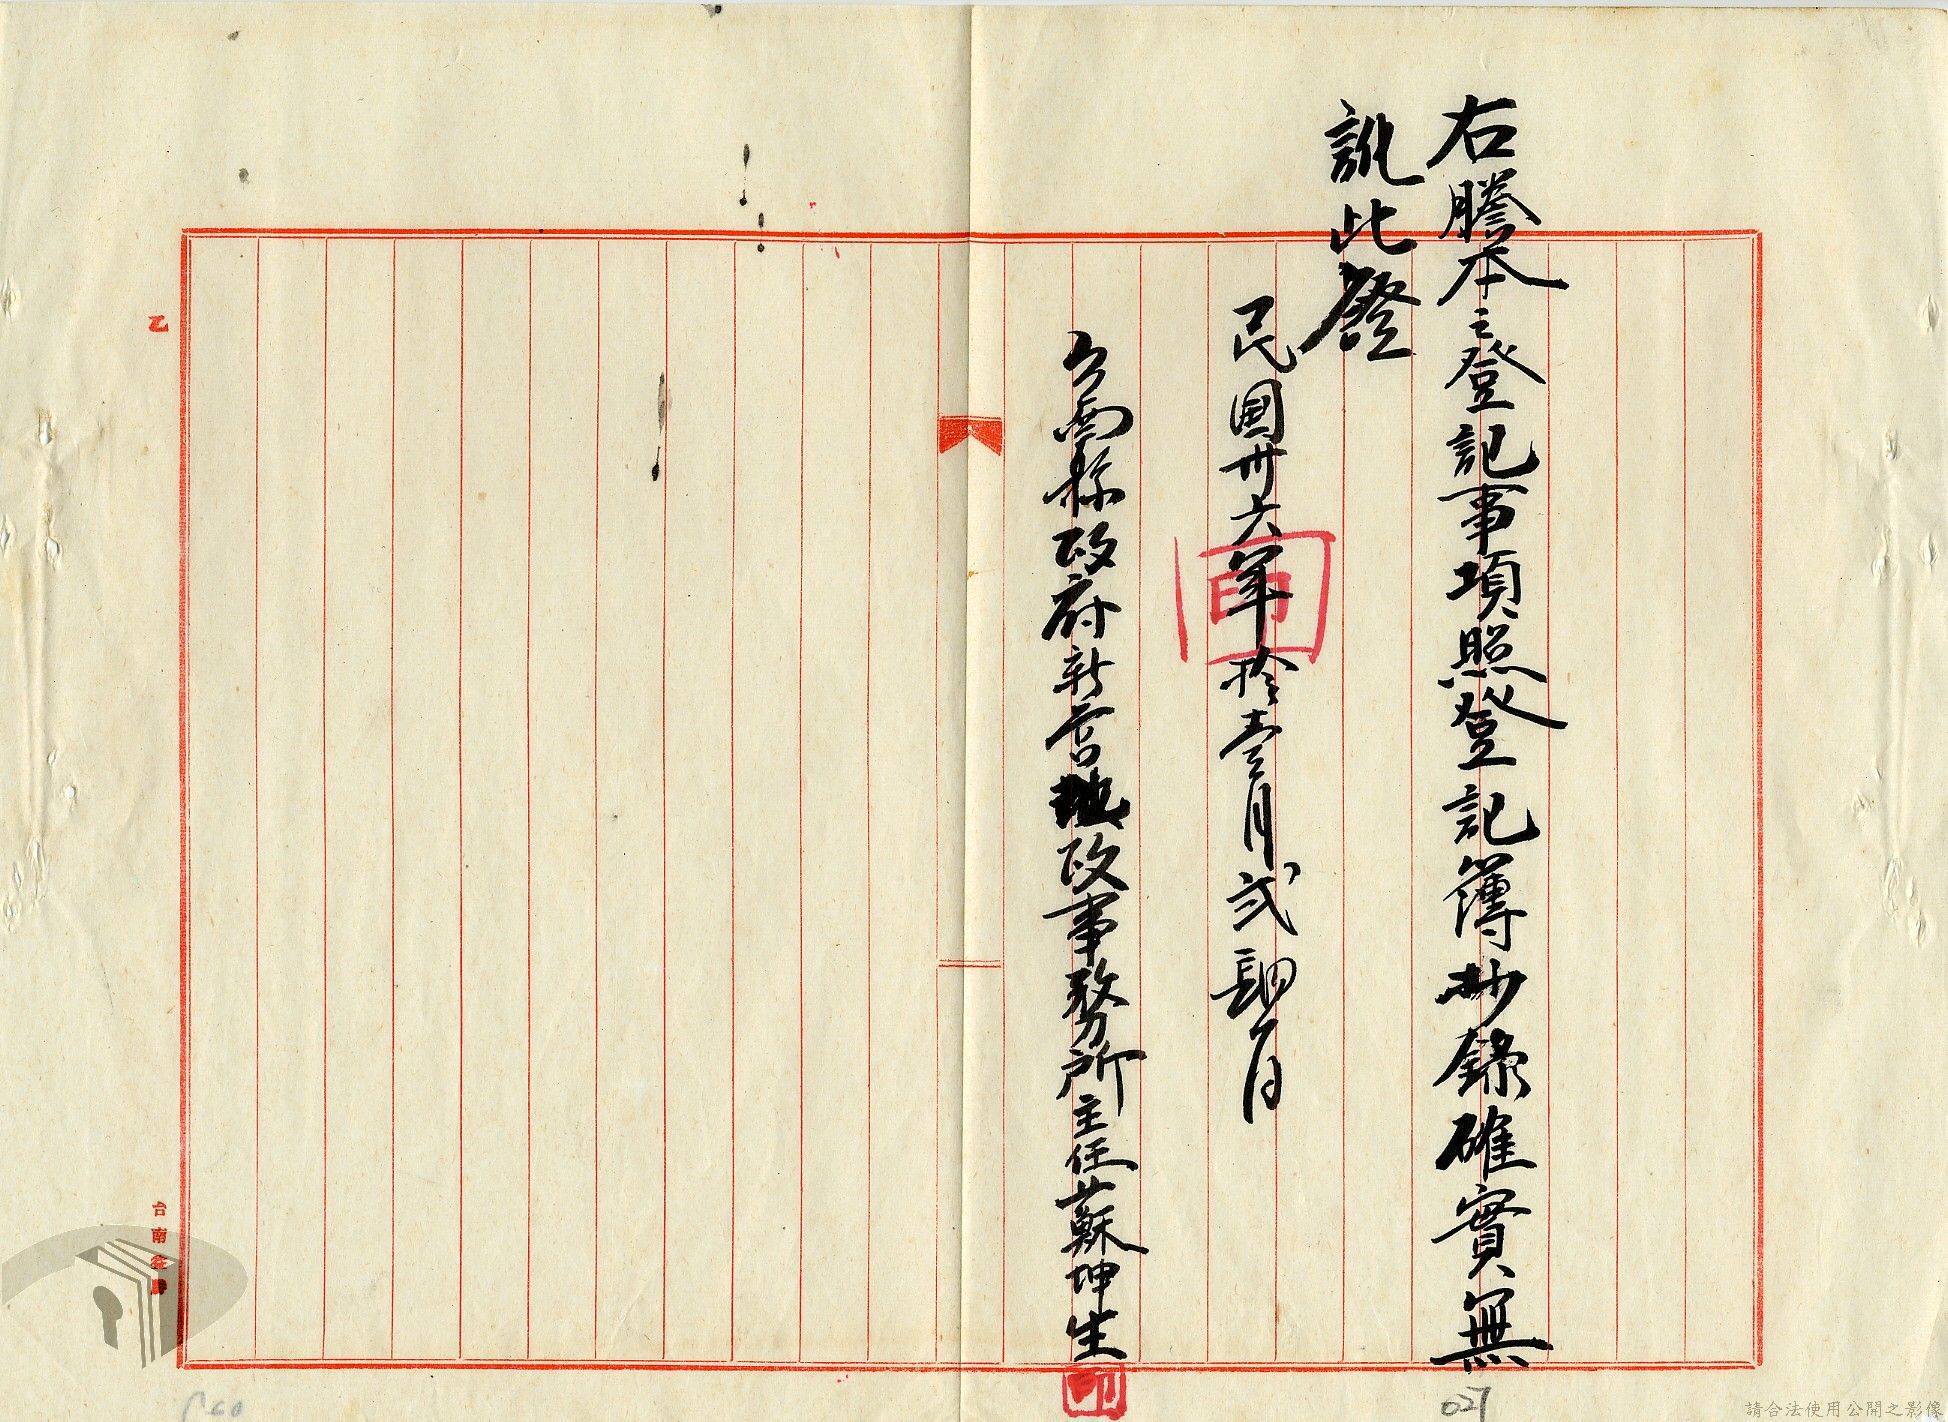 右謄本之登記事項照登記簿抄錄確實無
訛此證
民國卅六年拾壹月弍肆日
印
台南縣政府新營地政事務所主任蘇坤生
印
乙
台南
027
請合法使用公開之影像